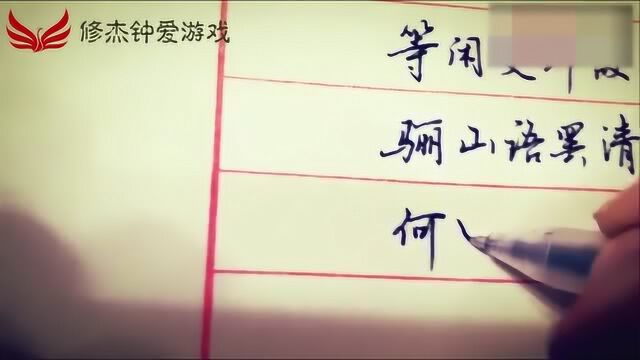 修杰钟爱游戏
等闲
骊山语罢清
何